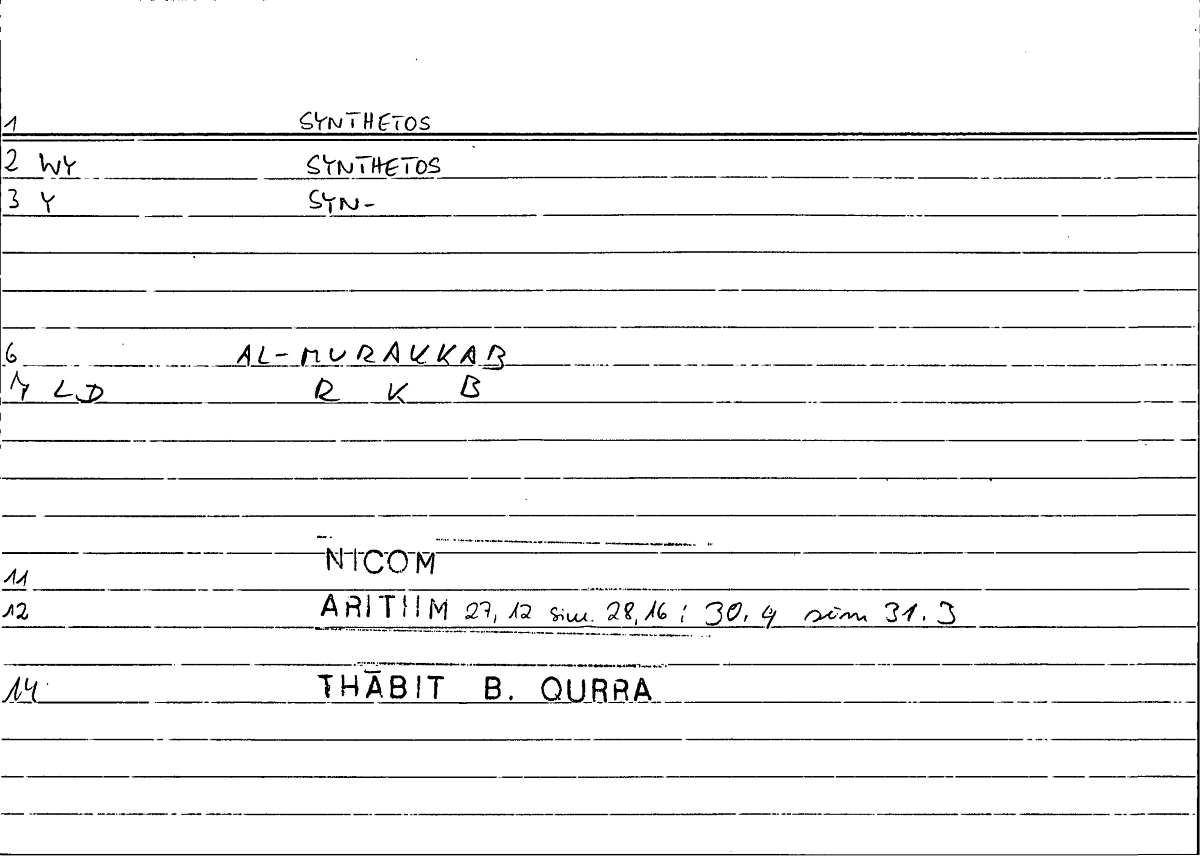 1 SYNTHETOS
2 WY SYNTHETOS
3 Y SYN-
6 AL-MURAKKAB
7 LD R K B
11 NICOM
12 ARITHM 27, 12 sim. 28, 16 ; 30. 9 sim 31. 3
14 THĀBIT B. QURRA